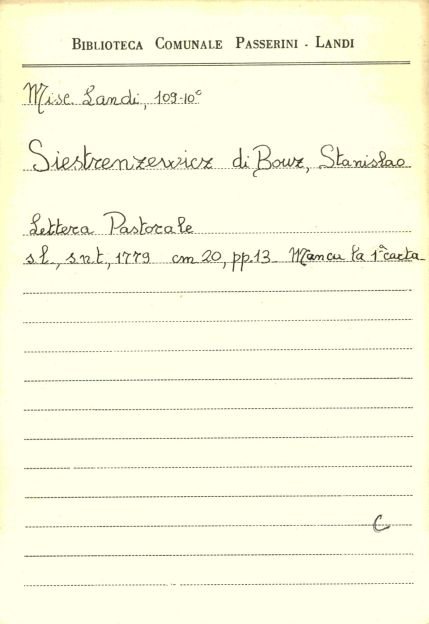 BIBLIOTECA COMUNALE PASSERINI - LANDI
Misc. Landi, 109-10°
Siestrenzewicz di Bouz, Stanislao
Lettera Pastorale
s.l., s.n.t., 1779 cm 20, pp. 13 Manca la 1ª carta
C